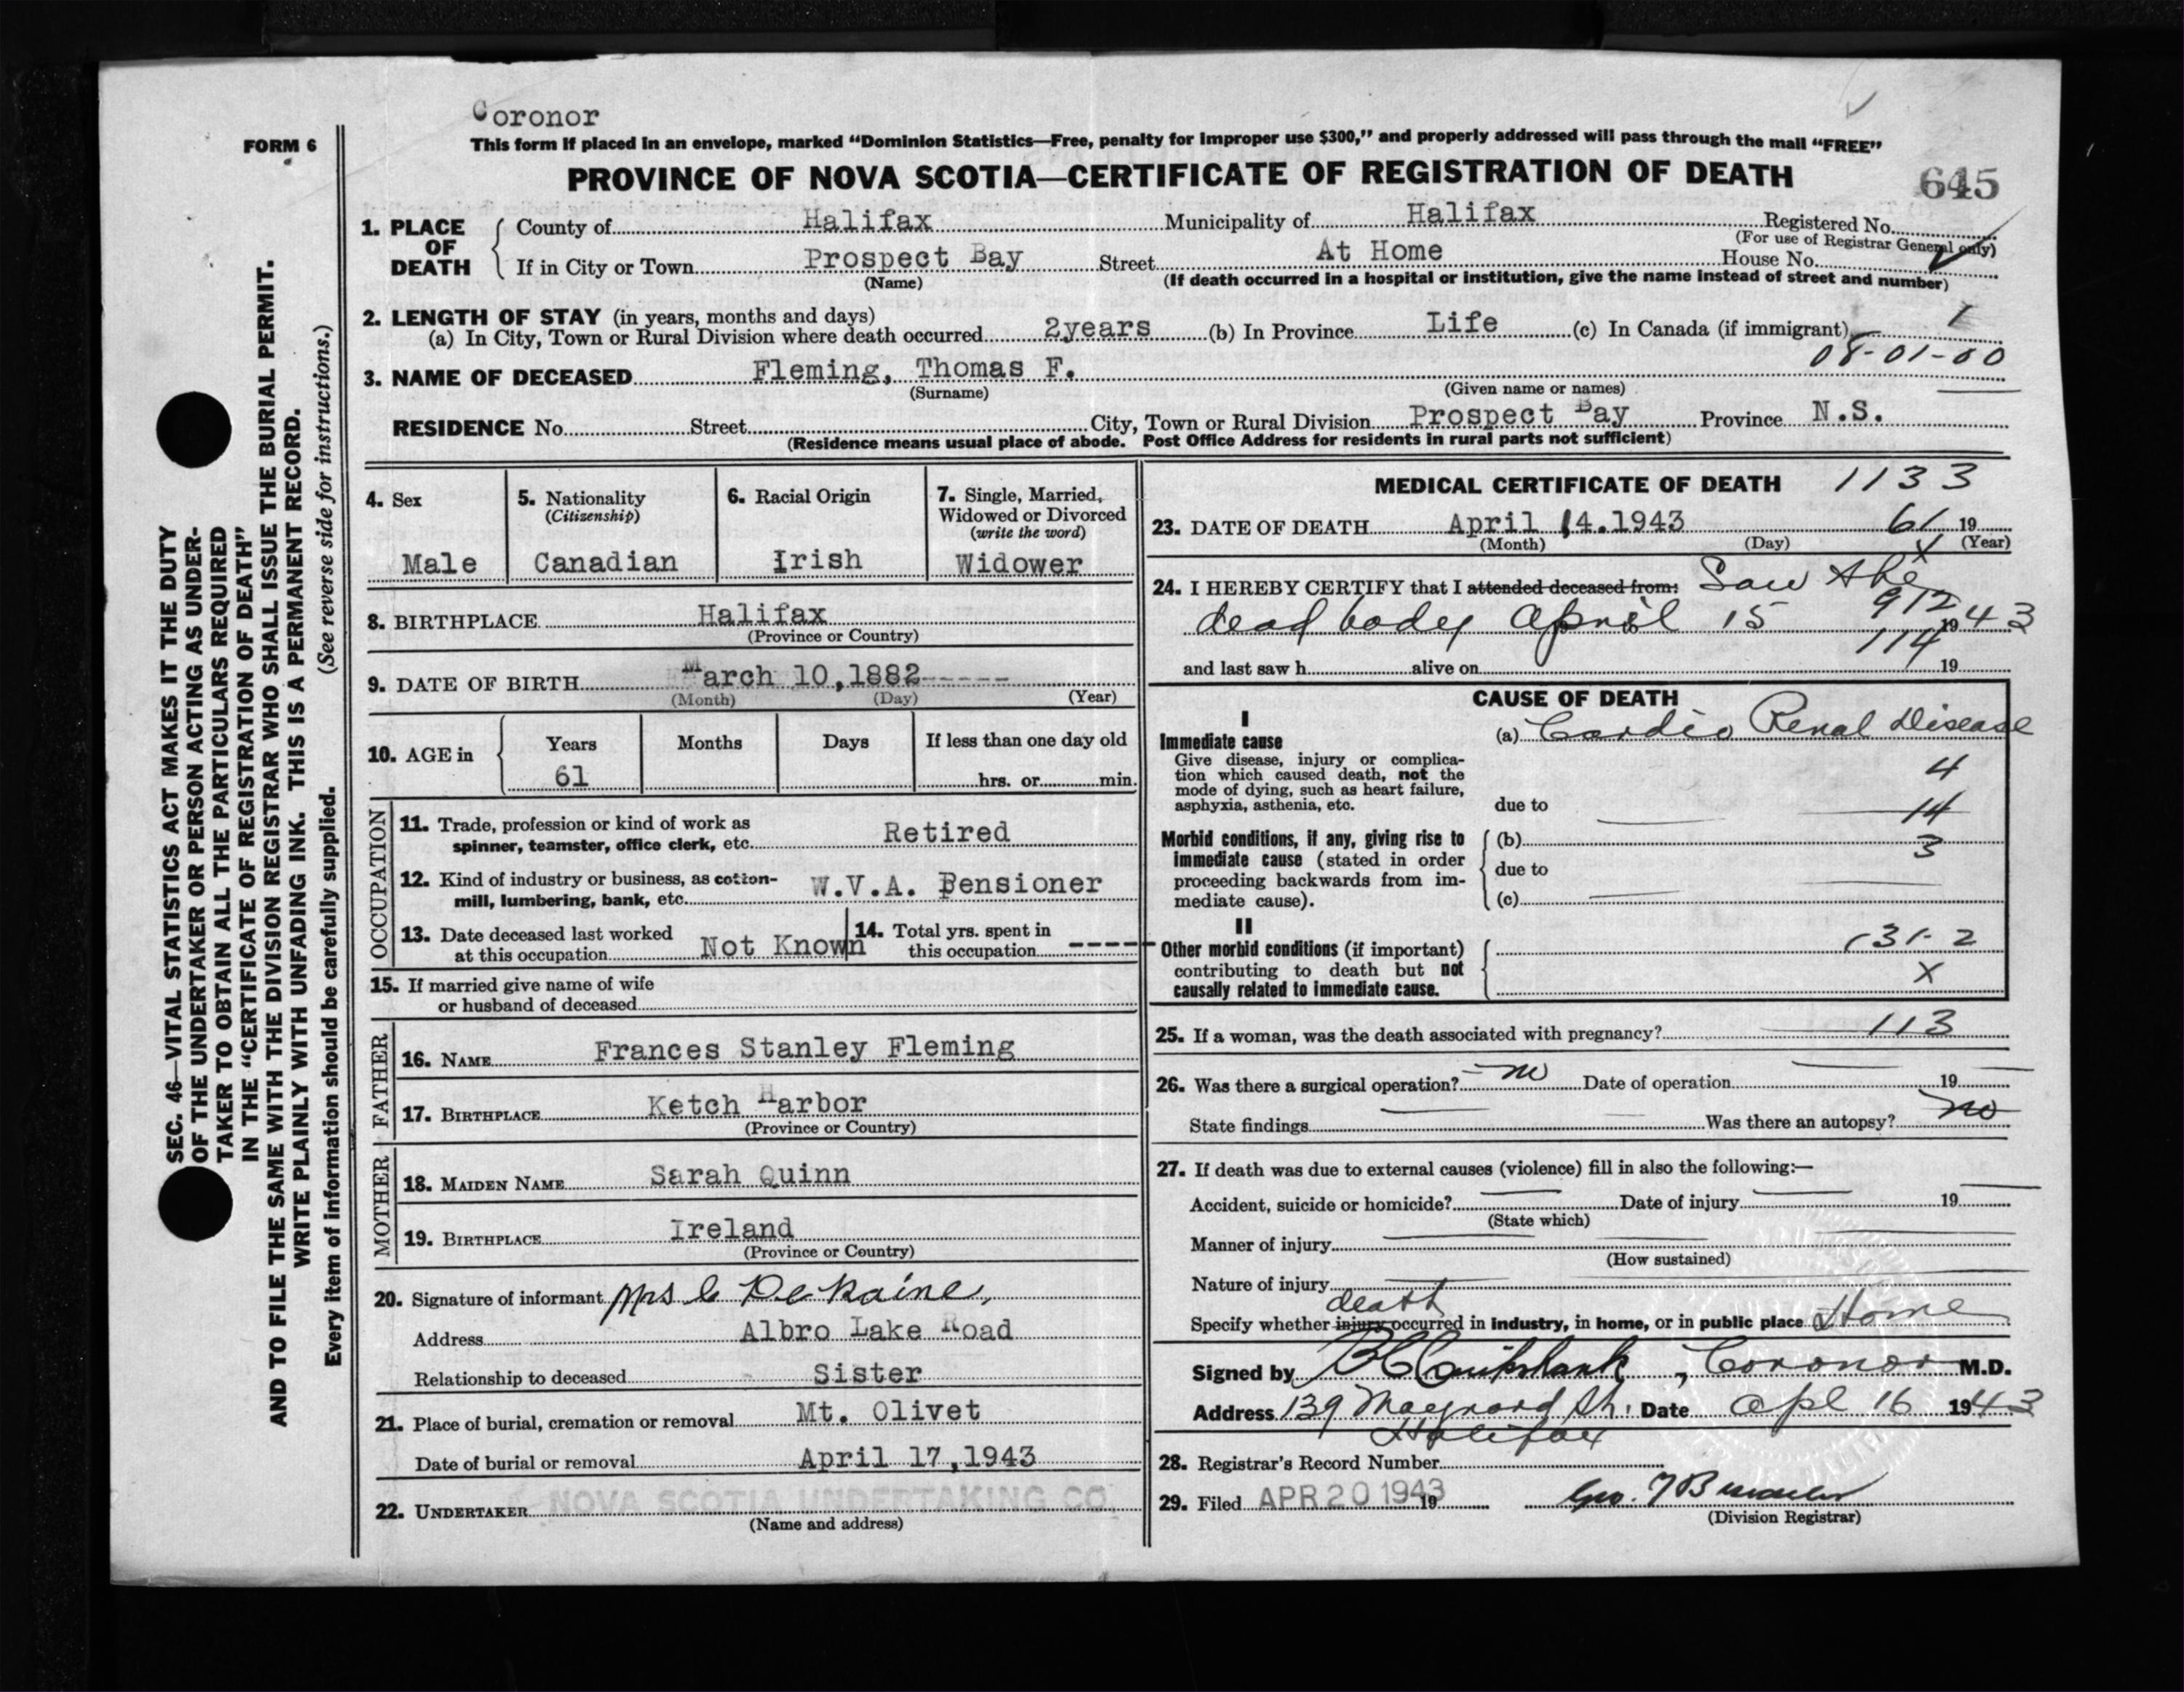 Coronor
FORM 6
This form if placed in an envelope, marked “Dominion Statistics—Free, penalty for improper use $300,” and properly addressed will pass through the mail “FREE”
PROVINCE OF NOVA SCOTIA—CERTIFICATE OF REGISTRATION OF DEATH 645
1. PLACE OF DEATH
County of Halifax Municipality of Halifax Registered No.
(For use of Registrar General only)
If in City or Town Prospect Bay Street At Home House No.
(Name) (If death occurred in a hospital or institution, give the name instead of street and number)
2. LENGTH OF STAY (in years, months and days)
(a) In City, Town or Rural Division where death occurred 2years (b) In Province Life (c) In Canada (if immigrant) 1
08-01-00
3. NAME OF DECEASED Fleming, Thomas F.
(Surname) (Given name or names)
RESIDENCE No. Street City, Town or Rural Division Prospect Bay Province N.S.
(Residence means usual place of abode. Post Office Address for residents in rural parts not sufficient)
4. Sex
Male
5. Nationality
(Citizenship)
Canadian
6. Racial Origin
Irish
7. Single, Married,
Widowed or Divorced
(write the word)
Widower
8. BIRTHPLACE Halifax
(Province or Country)
9. DATE OF BIRTH March 10,1882-----
(Month) (Day) (Year)
10. AGE in
Years Months Days If less than one day old
61 hrs. or min.
OCCUPATION
11. Trade, profession or kind of work as
spinner, teamster, office clerk, etc. Retired
12. Kind of industry or business, as cotton-
mill, lumbering, bank, etc. W.V.A. Pensioner
13. Date deceased last worked
at this occupation Not Known
14. Total yrs. spent in
this occupation -----
15. If married give name of wife
or husband of deceased
FATHER
16. NAME Frances Stanley Fleming
17. BIRTHPLACE Ketch Harbor
(Province or Country)
MOTHER
18. MAIDEN NAME Sarah Quinn
19. BIRTHPLACE Ireland
(Province or Country)
20. Signature of informant Mrs C DeKaine,
Address Albro Lake Road
Relationship to deceased Sister
21. Place of burial, cremation or removal Mt. Olivet
Date of burial or removal April 17,1943
22. UNDERTAKER NOVA SCOTIA UNDERTAKING CO.
(Name and address)
MEDICAL CERTIFICATE OF DEATH 1133
23. DATE OF DEATH April 14.1943 61 19
(Month) (Day) (Year)
24. I HEREBY CERTIFY that I attended deceased from: Saw the
dead body April 15 1943
912
114
and last saw h alive on 19
CAUSE OF DEATH
I
Immediate cause
Give disease, injury or complica-
tion which caused death, not the
mode of dying, such as heart failure,
asphyxia, asthenia, etc.
(a) Cardio Renal Disease
4
due to
14
Morbid conditions, if any, giving rise to
immediate cause (stated in order
proceeding backwards from im-
mediate cause).
(b)
3
due to
(c)
II
Other morbid conditions (if important)
contributing to death but not
causally related to immediate cause.
131-2
X
25. If a woman, was the death associated with pregnancy? 113
26. Was there a surgical operation? no Date of operation 19
State findings Was there an autopsy? no
27. If death was due to external causes (violence) fill in also the following:—
Accident, suicide or homicide? Date of injury 19
(State which)
Manner of injury
(How sustained)
Nature of injury
death
Specify whether injury occurred in industry, in home, or in public place Home
Signed by , Coronor M.D.
Address 139 Maynard St. Date Apl 16 1943
Halifax
28. Registrar's Record Number
29. Filed APR 20 1943 19
(Division Registrar)
SEC. 46—VITAL STATISTICS ACT MAKES IT THE DUTY
OF THE UNDERTAKER OR PERSON ACTING AS UNDER-
TAKER TO OBTAIN ALL THE PARTICULARS REQUIRED
IN THE “CERTIFICATE OF REGISTRATION OF DEATH”
AND TO FILE THE SAME WITH THE DIVISION REGISTRAR WHO SHALL ISSUE THE BURIAL PERMIT.
WRITE PLAINLY WITH UNFADING INK. THIS IS A PERMANENT RECORD.
Every item of information should be carefully supplied. (See reverse side for instructions.)